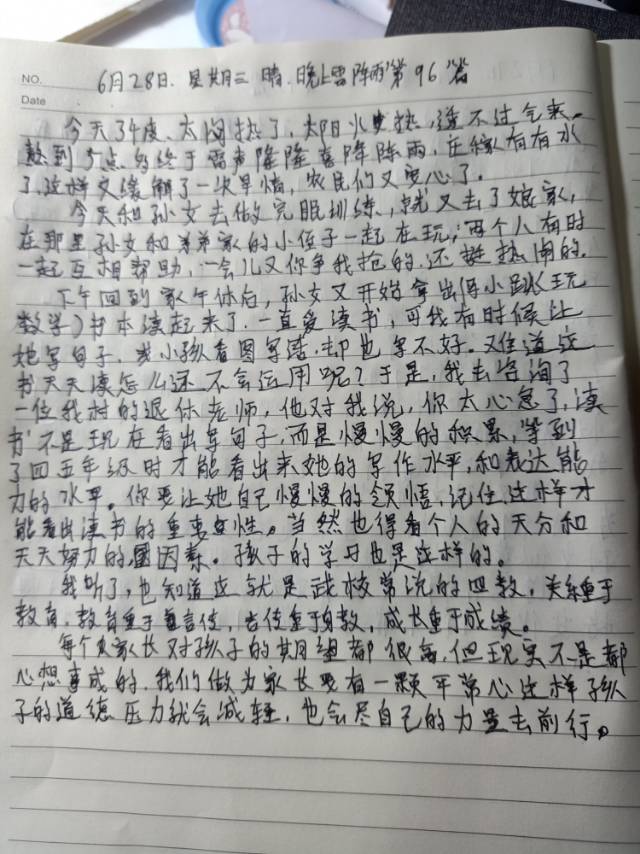 NO.
Date
6月28日.星期三 晴.晚上雷阵雨 第96篇
今天34度.太闷热了,太阳火热,透不过气来.
熬到5点多终于雷声隆隆喜降阵雨,庄稼有有水
了.这样又缓解了一次旱情,农民们又安心了。
今天和孙女去做完眼训练,就又去了娘家,
在那里孙女和弟弟家的小侄子一起在玩,两个人有时
一起互相帮助,一会儿又你争我抢的.还挺热闹的.
下午回到家午休后,孙女又开始拿出(袋小跳《玩
数学》)书本读起来了.一直爱读书,可我有时候让
她写句子,或小孩看图写话.却也写不好.难道这
书天天读怎么还不会运用呢?于是,我去咨询了
一位我村的退休老师,他对我说,你太心急了,读
书不是现在看出写句子,而是慢慢的积累,等到
了四五年级时才能看出来她的写作水平,和表达能
力的水平。你要让她自己慢慢的领悟,记住.这样才
能看出读书的重要性。当然也得看个人的天分和
天天努力的因素.孩子的学习也是这样的。
我听了,也知道这就是武校常说的四教,关系重于
教育,教育重于言传,言传重于身教,成长重于成绩。
每个家长对孩子的期望都很高,但现实不是都
心想事成的.我们做为家长要有一颗平常心这样孩
子的道德压力就会减轻,也会尽自己的力量去前行。